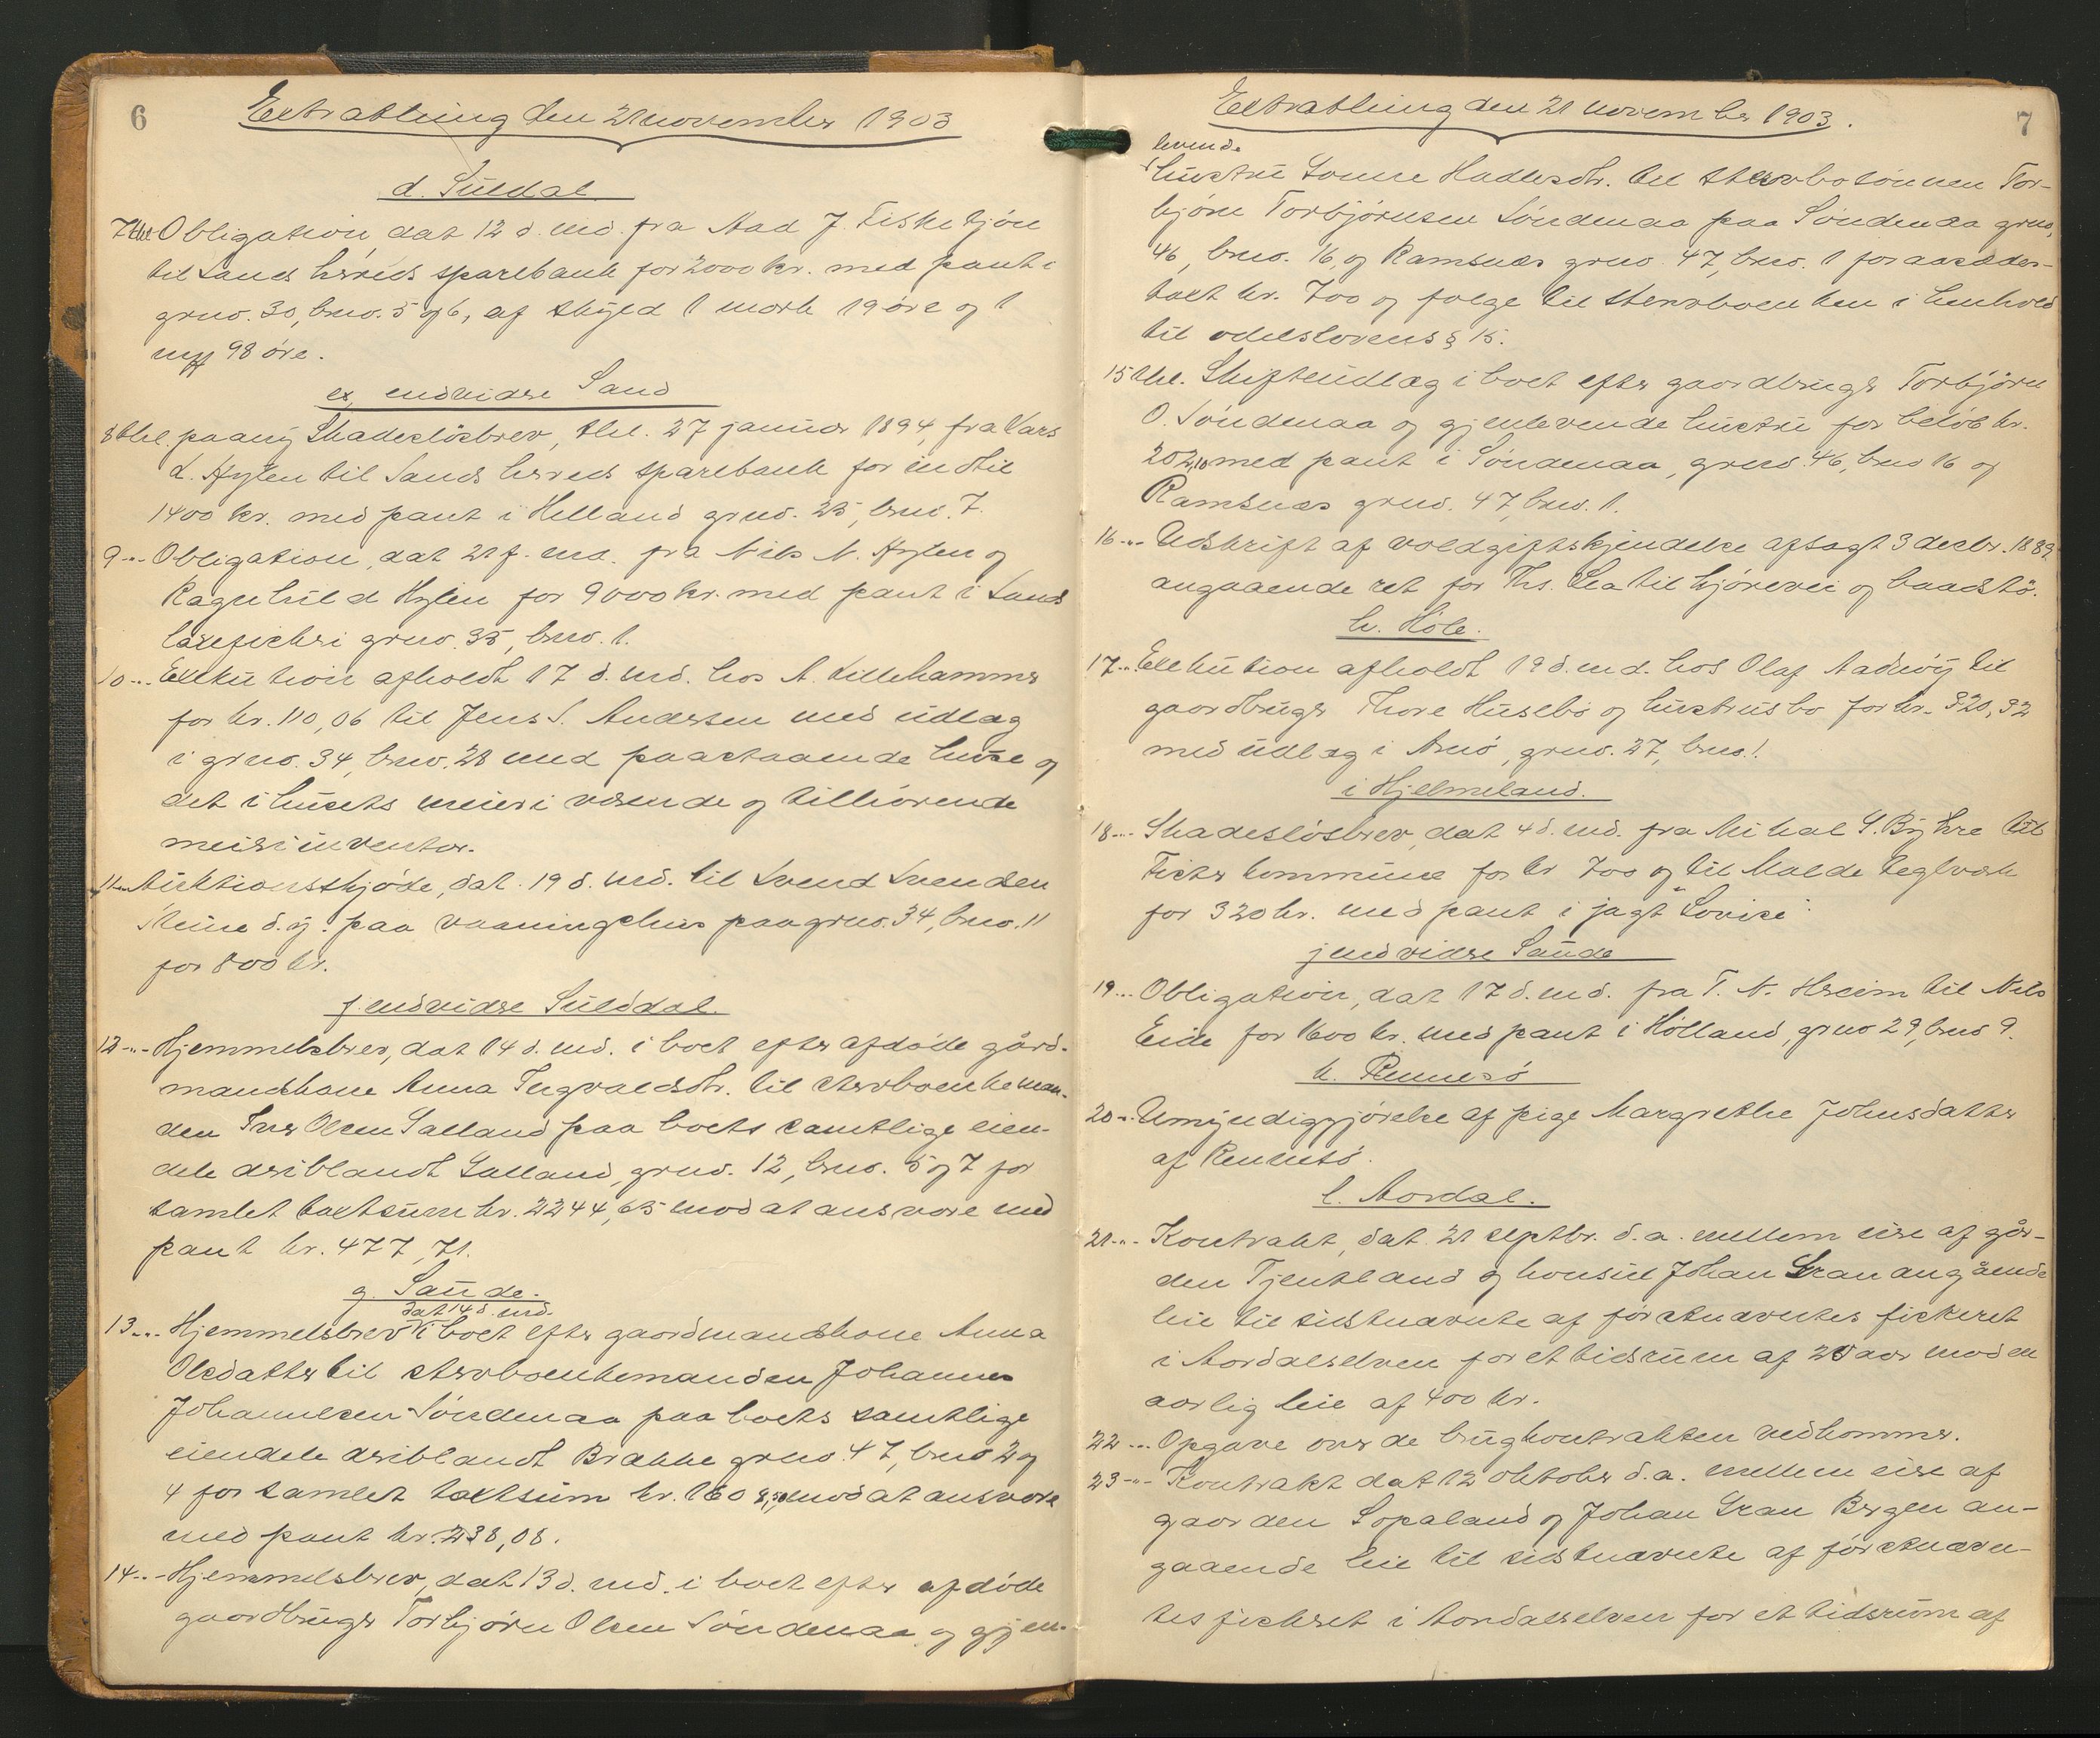 6
Extrathing den 21 november 1903
d. Suldal
7 thl. Obligation, dat 12 d. md. fra Aad J. Fisketjön
til Sands hereds sparebank for 2000 kr. med pant i
grno. 30, brno. 5 og 6, af skyld 1 mark 19 öre og 1
98 öre.
e, endvidre Sand
8 thl. paany Skadeslösbrev, thl. 27 januar 1894, fra Lars
L. Hylen til Sands hereds sparebank for indtil
1400 kr. med pant i Helland grno. 25, brno. 7.
9 -"- Obligation, dat 21 f. md. fra Nils N. Hylen og
Ragnhild Hylen for 9000 kr. med pant i Sands
laxefiskeri grno. 35, brno. 1.
10 -"- Exekution afholdt 17 d. md. hos A. Lillehammer
for kr. 110,06 til Jens S. Andersen med udlæg
i grno. 34, brno. 28 med paastaaende huse og
det i husets meieri værende og tilhörende
meieriinventar.
11 -"- Auktionsskjöde, dat. 19 d. md. til Svend Svendsen
d. y. paa vaaningshus paa grno. 34, brno. 11
for 800 kr.
f. endvidre Suldal.
12 -"- Hjemmelsbrev, dat 14 d. md. i boet efter afdöde gård-
mandskone Anna Ingvaldsdtr. til stervboenkeman-
den Iver Olsen Galland paa boets samtlige eien-
dele deriblandt Galland, grno. 12, brno. 5 og 7 for
samlet taxtsum kr. 2244,65 mod at ansvare med
pant kr. 477,71.
g. Saude.
dat 14 d. md.
13 -"- Hjemmelsbrev i boet efter gaardmandskone Anna
Olsdatter til stervboenkemanden Johannes
Johannesen Söndenaa paa boets samtlige
eiendele deriblandt Brække grno. 47, brno 2 og
4 for samlet taxtsum kr. 1608,50 mod at ansvare
med pant kr. 238,08.
14 -"- Hjemmelsbrev, dat 13 d. md. i boet efter afdöde
gaardbruger Torbjörn Olsen Söndenaa og gjen-
Extrathing den 21 november 1903.
7
levende
hustru Hadlesdtr. til stervbosönnen Tor-
björn Torbjörnsen Söndenaa paa Söndenaa grno.
46, brno. 16, og Ramsnæs grno. 47, brno. 1 for aasædes-
taxt kr. 700 og folge til stervboenken i henhold
til odelslovens § 15.
15 thl. Skifteudlæg i boet efter gaardbruger Torbjörn
O. Söndenaa og gjenlevende hustru for belöb kr.
202,10 med pant i Söndenaa, grno. 46, brno 16 og
Ramsnæs grno. 47, brno. 1.
16 -"- Udskrift af voldgiftskjendelse afsagt 3 decbr. 1889
angaaende ret for Ths. Lea til kjörevei og baadstö.
h. Höle.
17 -"- Exekution afholdt 19 d. md. hos Olaf Aadnöy til
gaardbruger Thore Husebö og hustrus bo for kr. 320,32
med udlæg i Ænö, grno. 27, brno. 1.
i Hjelmeland.
18 -"- Skadeslösbrev, dat 4 d. md. fra Mikal G. til
Fister kommune for kr 700 og til Malde teglværk
for 320 kr. med pant i jagt "Lovise".
j endvidre Saude
19 -"- Obligation, dat 17 d. md. fra T. N. Hreim til Nils
Eide for 1600 kr. med pant i Hölland, grno 29, brno 9.
k. Rennesö
20 -"- Umyndiggjörelse af pige Margrethe Johnsdatter
af Rennesö.
l. Aardal.
21 -"- Kontrakt, dat. 21 septbr. d. a. mellem eier af går-
den Tjentland og konsul Johan Gran angående
leie til sidstnævnte af förstnævntes fiskeret
i Aardalselven for et tidsrum af 25 aar mod en
aarlig leie af 400 kr.
22 -"- Opgave over de brugkontrakten vedkommer.
23 -"- Kontrakt dat 12 oktober d. a. mellem eier af
gaarden Sopaland og Johan Gran Bergen an-
gaaende leie til sidstnævnte af förstnævn-
tes fiskeret i Aardalselven for et tidsrum af